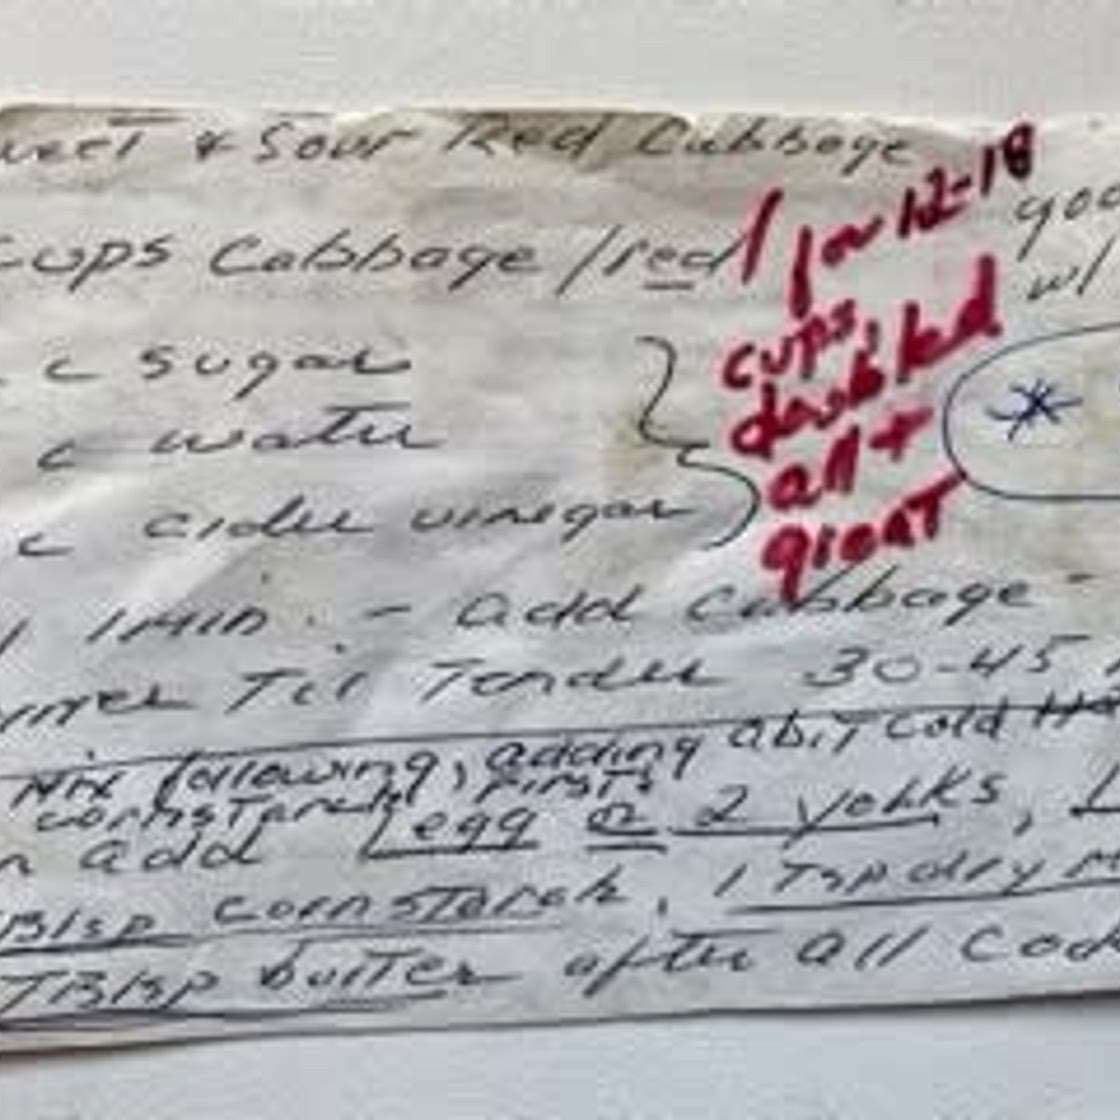 weet & Sour Red Cabbage
cups Cabbage / red / for 12-18
goo
w/
cups,
doubled
all +
great
c sugar
c water
c cider vinegar
1 min. - add cabbage -
mmer Til Tender 30-45
Mix following, adding a bit cold H2
cornstarch first,
n add 1 egg or 2 yohks, 1
TBlsp cornstarch, 1 Tsp dry m
TBlsp butter after all coo